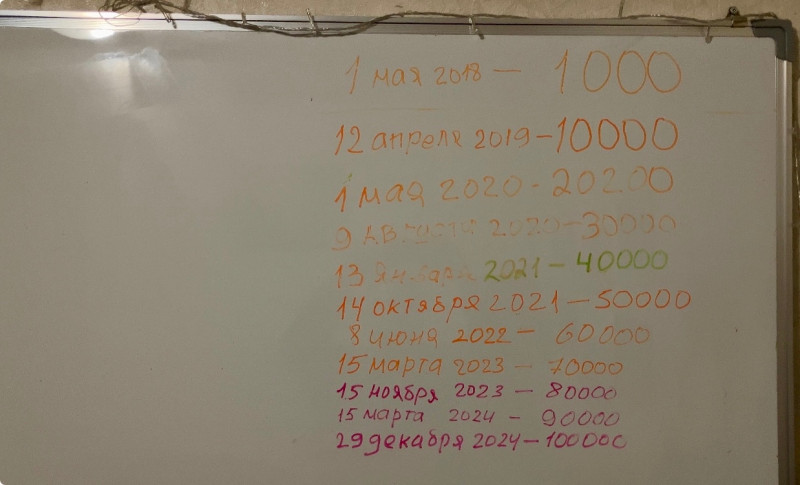 1 мая 2018 — 1000
12 апреля 2019 — 10000
1 мая 2020 - 20200
9 августа 2020 — 30000
13 января 2021 — 40000
14 октября 2021 — 50000
8 июня 2022 — 60000
15 марта 2023 — 70000
15 ноября 2023 — 80000
15 марта 2024 - 90000
29 декабря 2024 — 100000